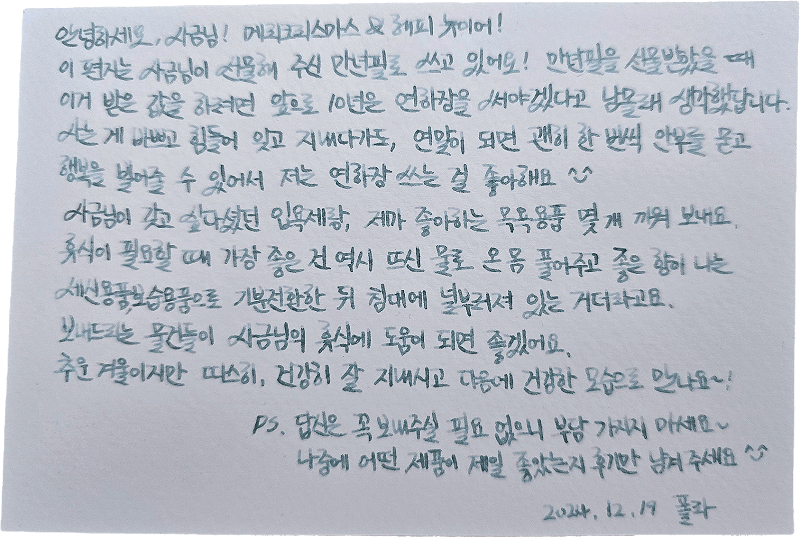 안녕하세요, 사금님! 메리크리스마스 & 해피 뉴이어!
이 편지는 사금님이 선물해 주신 만년필로 쓰고 있어요! 만년필을 선물받았을 때
이거 받은 값을 하려면 앞으로 10년은 연하장을 써야겠다고 남몰래 생각했답니다.
사는 게 바쁘고 힘들어 잊고 지내다가도, 연말이 되면 괜히 한 번씩 안부를 묻고
행복을 빌어줄 수 있어서 저는 연하장 쓰는 걸 좋아해요 ^^
사금님이 갖고 싶다셨던 입욕제랑, 제가 좋아하는 목욕용품 몇 개 끼워 보내요.
휴식이 필요할 때 가장 좋은 건 역시 뜨신 물로 온 몸 풀어주고 좋은 향이 나는
세신용품,보습용품으로 기분전환한 뒤 침대에 널부러져 있는 거더라고요.
보내드리는 물건들이 사금님의 휴식에 도움이 되면 좋겠어요.
추운 겨울이지만 따스히, 건강히 잘 지내시고 다음에 건강한 모습으로 만나요~!
PS. 답신은 꼭 보내주실 필요 없으니 부담 가지지 마세요~
나중에 어떤 제품이 제일 좋았는지 후기만 남겨 주세요 ^^
2024. 12. 19 폴라